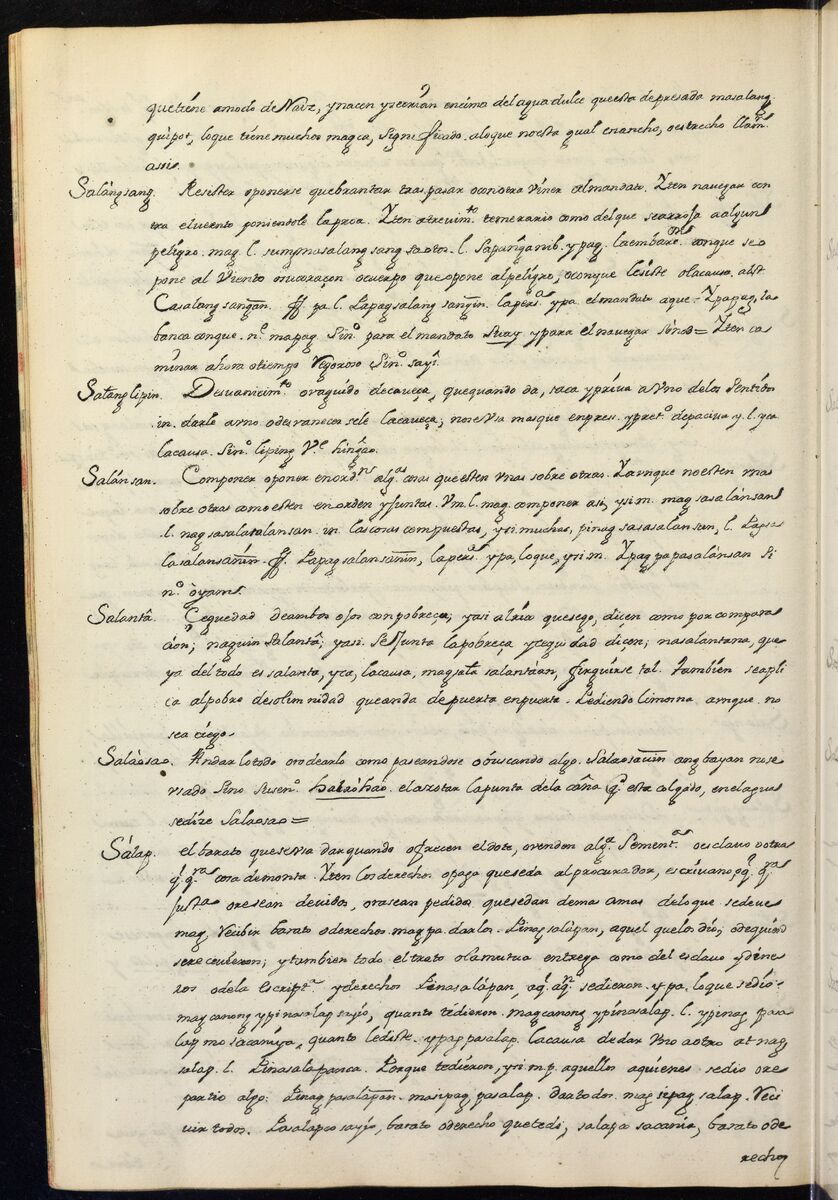 que tiene amodo de Naiz, y nacen y se crian encima del agua dulce que esta depresada masalang
quipot, lo que tiene muchos magca, significado. alo que no esta qual en ancho, o estrecho llam.
assi.
Salángsang. Resistir oponerse quebrantar traspasar o contravenir al mandato. Yten navegar con
tra el viento poniendole la proa. Yten atrevim.to temerario como del que se arroja a algun
peligro. mag. l. sungmasalangsang sa otos. l. sapangánib. y pag. la embarc.on conque se o
pone al Viento o coraçon o cuerpo que opone al peligro, o conque resiste o la causa. abst
Casalangsangan. ff. pa l. Papagsalangsangin. la pers.a ypa. el mandato aque. Ypapag, la
banca conque. n.e mapag. Sin.o para el mandato suay y para el navegar sónso= Yten ca
minar ahora o tiempo Vigoroso Sin.o sayi.
Salanglipin. Desvanecim.to o vaguido de caueça, que quando da, saca y priva a Vno de los sentidos
in. darlo a vno o desvanecersele la caueça, no se Vsa mas que en pres. y pret.o de pasiva y l. yca
la causa. Sin.o liping V.e hingáo.
Salánsan. Componer o poner en ord.n alg.as cosas que esten vnas sobre otras. Y aunque no esten vnas
sobre otras como esten en orden y juntas. Vm. l. mag. componer asi, y si m. magsasalánsan
l. nagsasalasalansan. in. las cosas compuestas, y si muchas, pinagsasasalansan, l. Papsa
lasalansánin. ff. Papagsalansanin, la pers.a ypa, lo que, y si m. Ypagpapasalánsan Si
n.o óyam.
Salantâ. Çeguedad de ambos ojos con pobreça; y asi al rico que sego, dicen como por compara
cion; naguin salantâ; y asi. Se junta la pobreça y ceguedad diçen; nasalantana, que
ya del todo es salanta, yca, la causa, magsala salantáan, fingirse tal. tambien se apli
ca al pobre de solemnidad que anda de puerta en puerta. Pidiendo limosna aunque no
sea ciego.
Saláosao. Andar lo todo o rodearlo como paseandose o buscando algo. Salaosauin ang bayan no se
vsado sino su sen.o halaóhao. el asotar la punta de la caña q.e esta colgado, en el agua
se dize Salaosao=
Sálap. el barato que se vsa dar quando ofrecen el dote, o venden alg.a sement.a o esclavo v otra
q.e q.ra cosa de monta. Yten los derechos o paga que se da al procurador, escrivano, q.e q.ra
justa o resean devidos, o rasean pedidos que se dan demas amas de lo que se deve
mag. Recibir barato o derechos. magpa. darlos. Pinagsalápan, aquel que los dio, o de quien
se recivieron; y tambien todo el trato o la mutua entrega como del esclavo y dine
ros o de la Escript.a y derechos Pinasalápan, aq.l aq.n se dieron. ypa, lo que se dio.
magcanong ypinasalap sayio, quanto te dieron. magcanong ypinasálap. l. ypinag pasa
lap mo sacaniya, quanto le diste. ypagpasalap. la causa de dar Vno a otro at nag
salap. l. Pinasalapanca. Porque te dieron, y si m.p. aquellos a quienes se dio o re
partio algo. Pinagpasalapan. masipagpasalap. dar a todos. magsipagsalap. Reci
vir todos. Pasalapco sayio, barato o derecho que te di, salapco sacania, barato o de
rechos